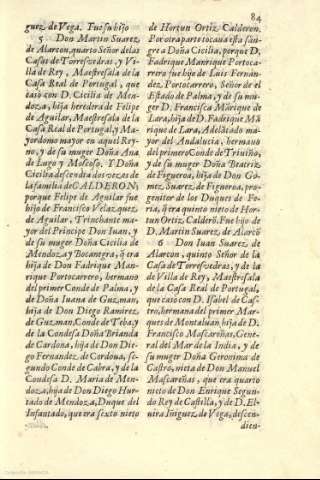 84
guez de Vega. Fue su hijo
5 Don Martin Suarez
de Alarcon, quarto Señor de las
Casas de Torresvedras, y Vi
lla de Rey, Maestresala de la
Casa Real de Portugal, que
casò con D. Cicilia de Men-
doza, hija heredera de Felipe
de Aguilar, Maestresala de la
Casa Real de Portugal, y Ma-
yordomo mayor en aquel Rey-
no, y de su muger Doña Ana
de Lugo y Moscoso. Y Doña
Cicilia descendia dos vezes de
la familia de CALDERON;
porque Felipe de Aguilar fue
hijo de Francisco Velazquez
de Aguilar, Trinchante ma-
yor del Principe Don Iuan, y
de su muger Doña Cicilia de
Mendoza y Bocanegra, q̃ era
hija de Don Fadrique Man-
rique Portocarrero, hermano
del primer Conde de Palma, y
de Doña Iuana de Guzman,
hija de Don Diego Ramirez
de Guzman, Conde de Teba, y
de la Condesa Doña Brianda
de Cardona, hija de Don Die-
go Fernandez de Cordoua, se-
gundo Conde de Cabra, y de la
Condesa D. Maria de Men-
doza, hija de Don Diego Hur-
tado de Mendoza, Duque del
Infantado, que era sexto nieto
de Hortun Ortiz Calderon.
Por otra parte tocaua esta sàn-
gre a Doña Cicilia, porque D.
Fadrique Manrique Portoca-
rrero fue hijo de Luis Fernan-
dez Portocarrero, Señor de el
Estado de Palma, y de su mu-
ger D. Francisca Mãrique de
Lara, hija de D. Fadrique Mã
rique de Lara, Adelãtado ma-
yor del Andalucia, hermano
del primero Conde de Triuiño,
y de su muger Doña Beatriz
de Figueroa, hija de Don Go-
mez Suarez de Figueroa, pro-
genitor de los Duques de Fe-
ria, q̃ era quinto nieto de Hor-
tun Ortiz Calderõ. Fue hijo de
D. Martin Suarez, de Alarcõ
6 Don Iuan Suarez de
Alarcon, quinto Señor de la
Casa de Torresvedras, y de la
de Villa de Rey, Maestresala
de la Casa Real de Portugal,
que caso con D. Isabel de Cas-
tro, hermana del primer Mar-
ques de Montaluan, hija de D.
Francisco Mascareñas, Gene-
ral del Mar de la India, y de
su muger Doña Geronima de
Castro, nieta de Don Manuel
Mascareñas, que era quarto
nieto de Don Enrique Segun-
do Rey de Castilla, y de D. El-
uira Iñiguez de Vega, descen-
dien-